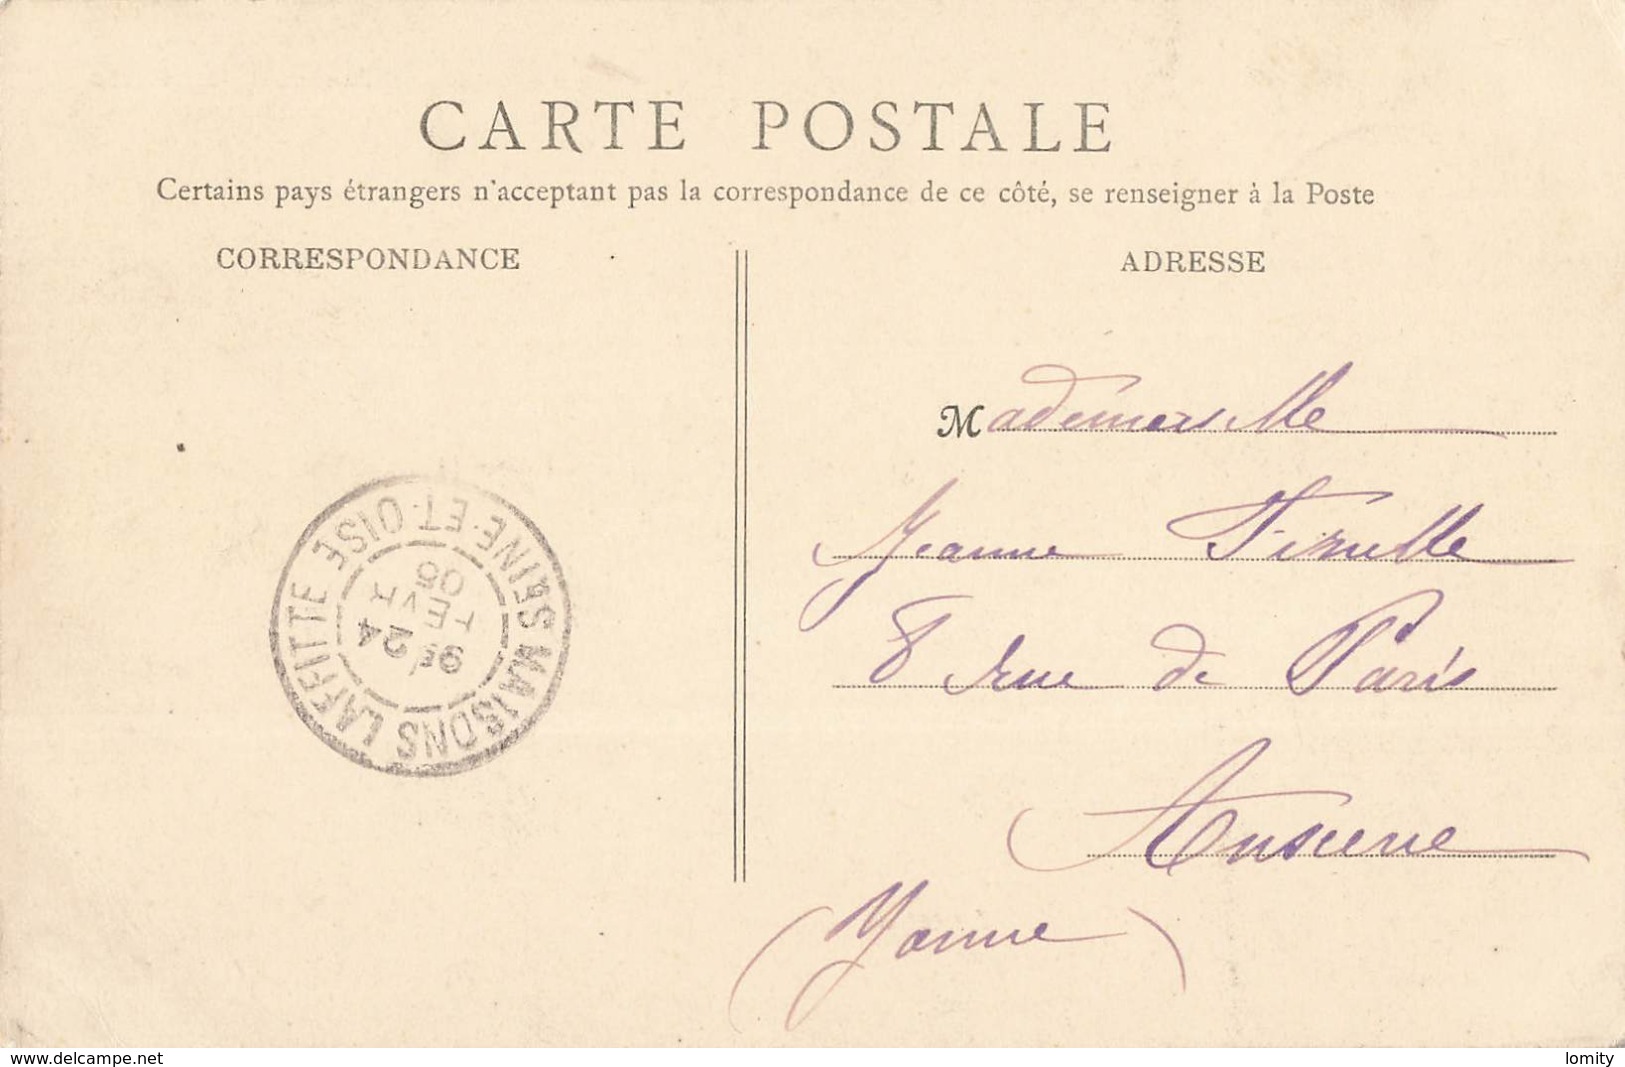 CARTE POSTALE
Certains pays étrangers n'acceptant pas la correspondance de ce côté, se renseigner à la Poste
CORRESPONDANCE
ADRESSE
Mademoiselle
Jeanne
8 rue de Paris
Auxerre
(Yonne)
MAISONS LAFFITTE SEINE-ET-OISE
9E/24
FEVR
05
www.delcampe.net
lomity